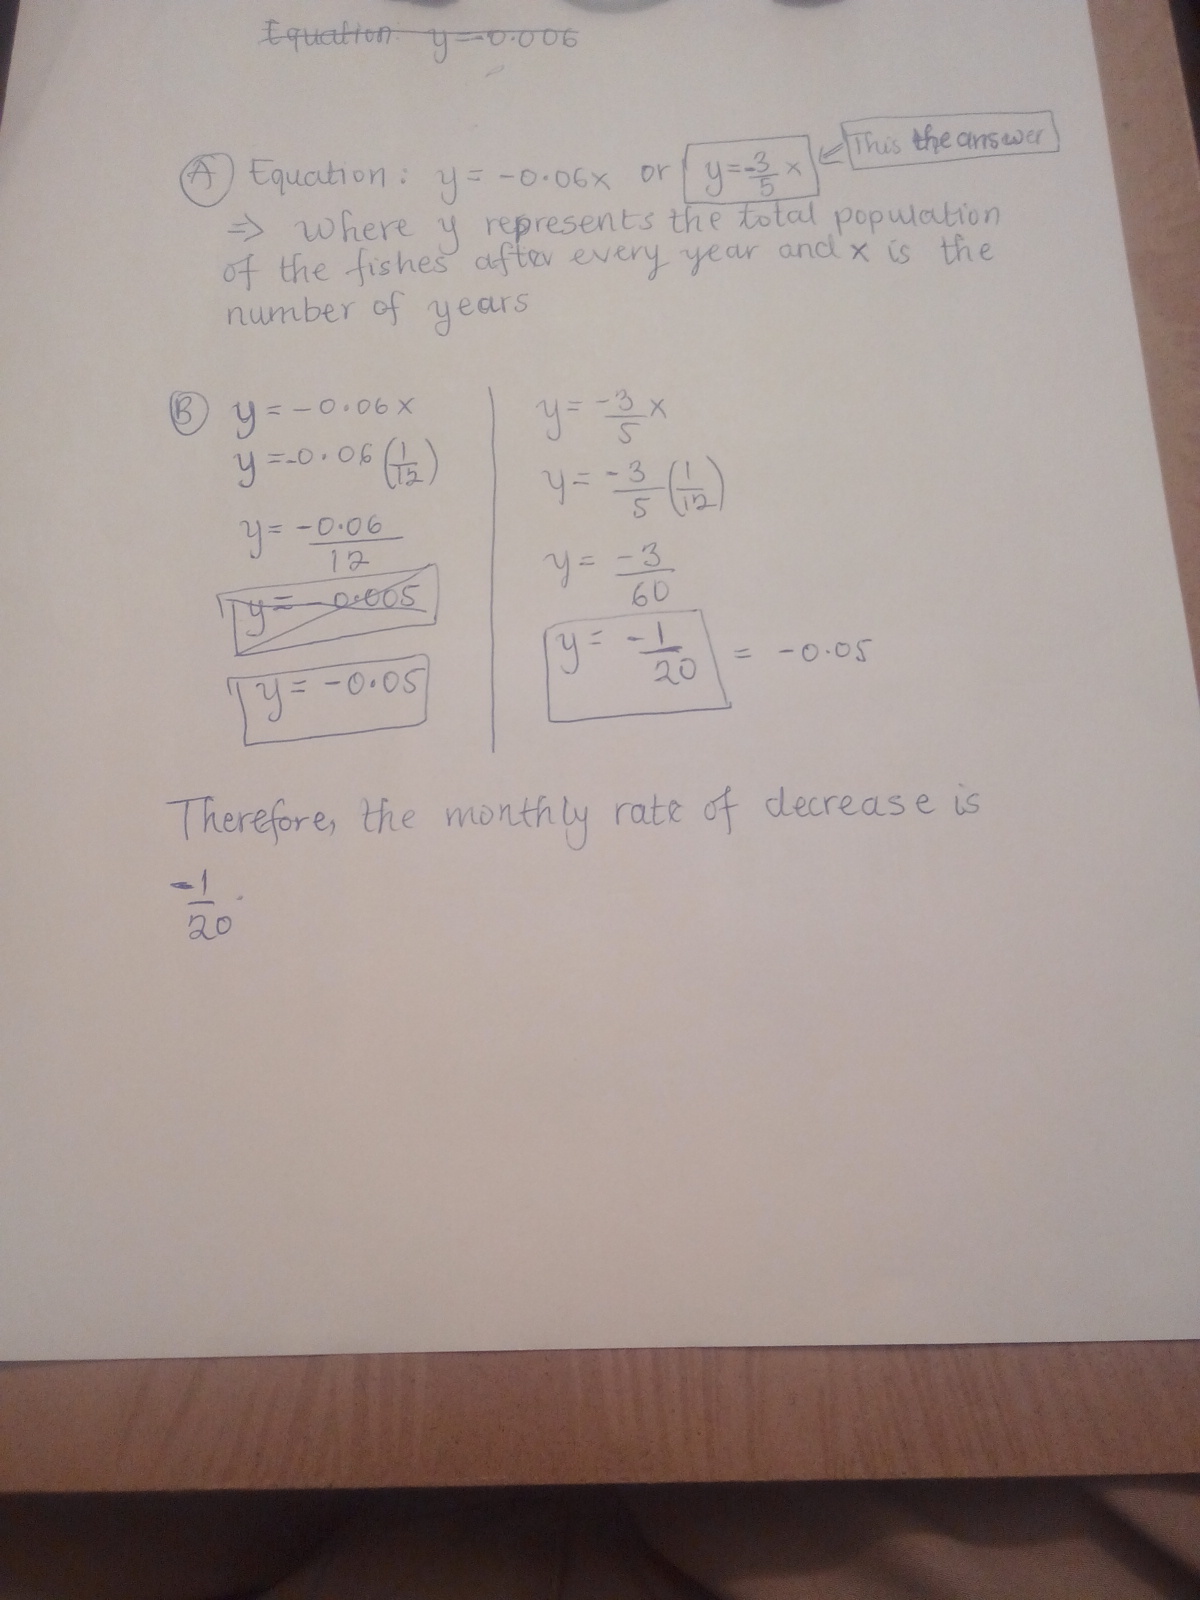 Equation: y=-0.006
A Equation: y = -0.06x or y=-3/5 x This the answer
⇒ where y represents the total population
of the fishes after every year and x is the
number of years
B y = -0.06x
y =-0.06 (1/12)
y = -0.06/12
y = -0.005
y = -0.05
y = -3/5 x
y = -3/5 (1/12)
y = -3/60
y = -1/20 = -0.05
Therefore, the monthly rate of decrease is
-1/20.